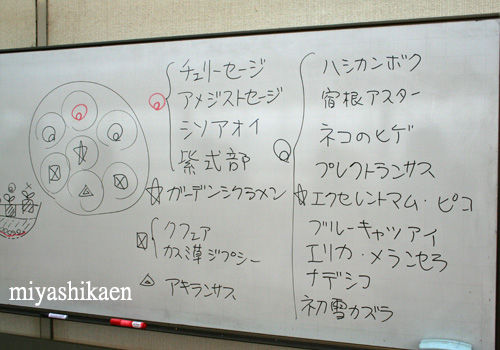 チェリーセージ
アメジストセージ
シソアオイ
紫式部
ガーデンシクラメン
クフェア
カスミ草ジプシー
アキランサス
ハシカンボク
宿根アスター
ネコのヒゲ
プレクトランサス
エクセレントマム・ピコ
ブルーキャッツアイ
エリカ・メランセラ
ナデシコ
初雪カズラ
miyashikaen